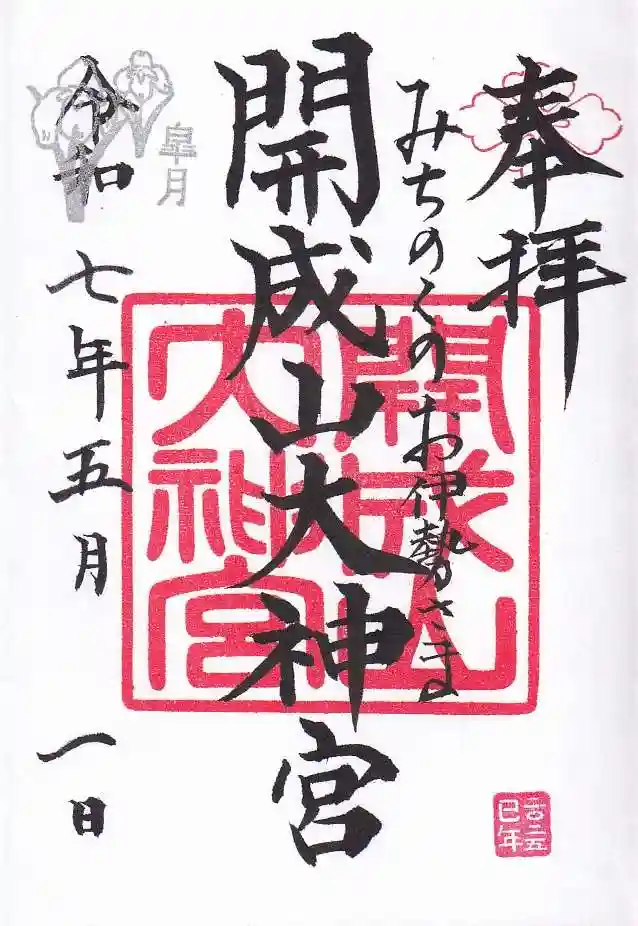 奉拝
みちのくのお伊勢さま
開成山大神宮
開成山
大神宮
皐月
令和七年五月一日
二〇二五
巳年